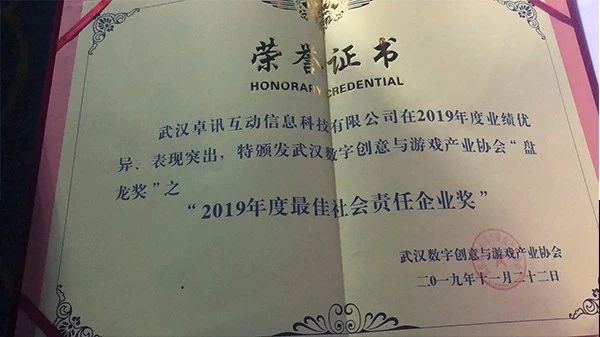 荣誉证书
HONORARY CREDENTIAL
武汉卓讯互动信息科技有限公司在2019年度业绩优
异、表现突出，特颁发武汉数字创意与游戏产业协会“盘
龙奖”之
“2019年度最佳社会责任企业奖”
武汉数字创意与游戏产业协会
二〇一九年十一月二十二日